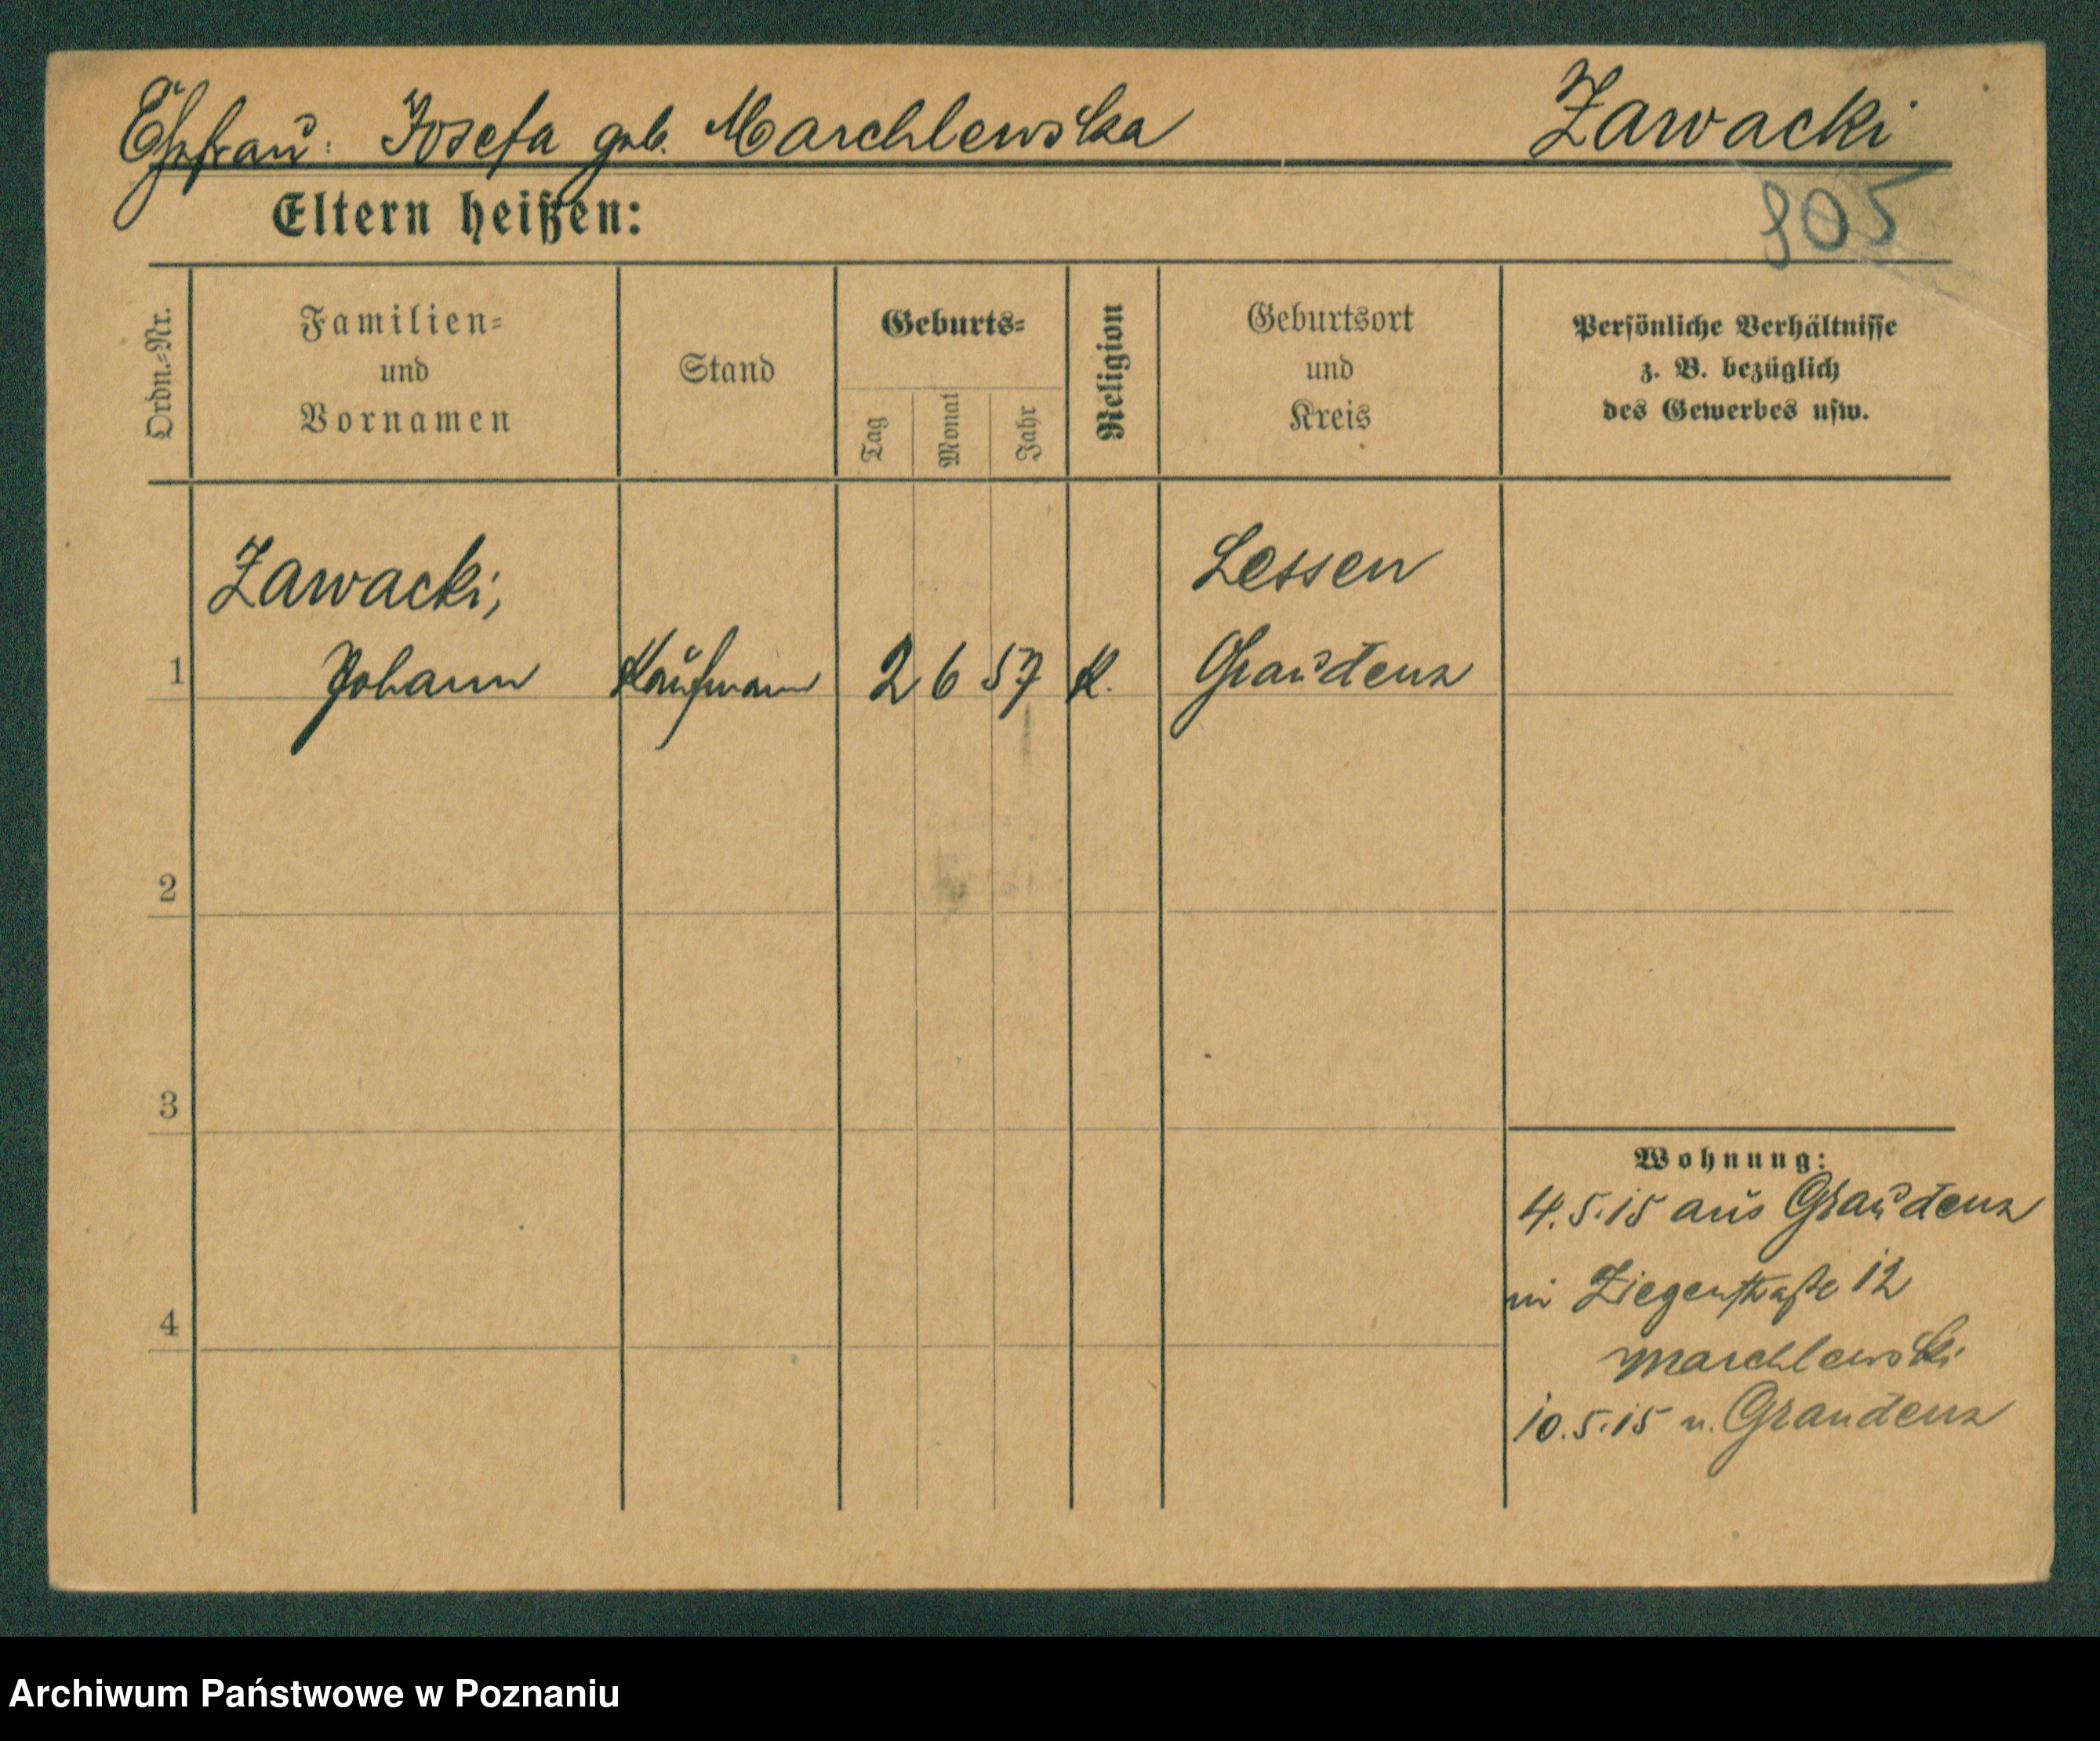 Ehefrau: Josefa geb. Marchlewska Zawacki
Eltern heißen:
805
Ordn.=Nr.
Familien=
und
Vornamen
Stand
Geburts=
Tag
Monat
Jahr
Religion
Geburtsort
und
Kreis
Persönliche Verhältnisse
z. B. bezüglich
des Gewerbes usw.
Zawacki, Lessen
1 Johann Kaufmann 2 6 57 K. Graudenz
2
3
Wohnung:
4.5.15 aus Graudenz
in Ziegenstraße 12
4
Marchlewski
10.5.15 n. Graudenz
Archiwum Państwowe w Poznaniu